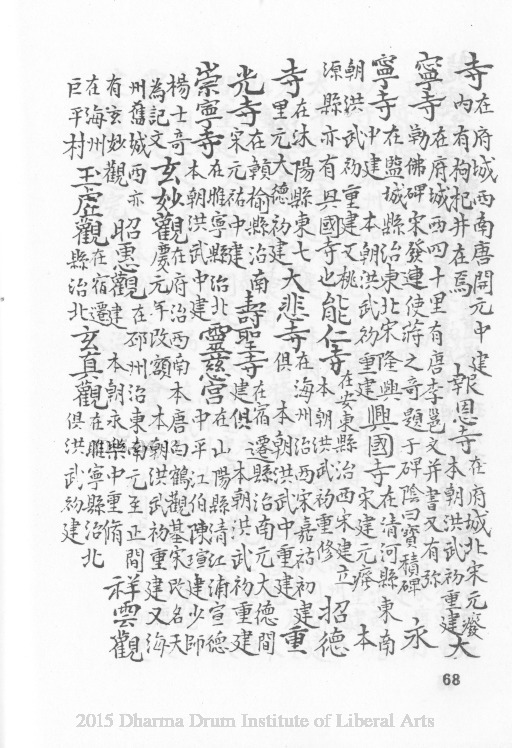 寺在府城西南唐開元中建内有枸杞井在焉報恩寺在府城北宋元癈本朝洪武初重建大
寧寺在府城西四十里有唐李邕文并書又有勒佛碑宋發運使蔣之奇題于碑陰曰寳積碑永
寧寺在監城縣治東北宋隆興中建 本朝洪武初重建興國寺在清河縣東南宋建元癈 本
朝洪武初重建又桃源縣亦有興國寺也能仁寺在安東縣治西宋建立本朝洪武初重修招德
寺在沭陽縣東七里元大德初建大悲寺在海州治西宋嘉祐初建俱 本朝洪武中重建重
光寺在贛榆縣治南宋元祐中建壽聖寺在宿遷縣治南元大德間建俱 本朝洪武初重建
崇寧寺在睢寧縣治北本朝洪武中建靈慈宮在山陽縣清江浦宣德中平江伯陳瑄建少師
楊士奇為記文玄妙觀在府治西南本唐白鶴觀基宋改名天慶元年改額 本朝洪武初重建又海
州舊城西亦有玄妙觀昭惠觀在邳州治東南元至正間建 本朝永樂中重脩祥雲觀
在海州巨平村玉虛觀在宿遷縣治北玄真觀在睢寧縣治北俱洪武初建
68
2015 Dharma Drum Institute of Liberal Arts